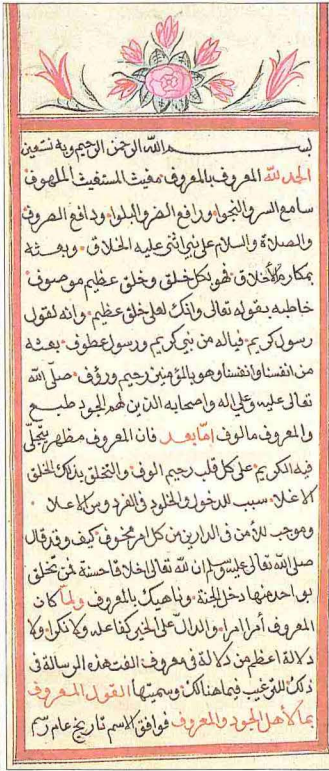 بسم الله الرحمن الرحيم وبه نستعين
الحمد لله المعروف بالمعروف مغيث المستغيث الملهوف
سامع السر والنجوا ورافع الضر والبلوا ودافع الصروف
والصلاة والسلام على نبي اثنى عليه الخلاق وبعثه
بمكارم الأخلاق فهو بكل خلق وخلق عظيم موصوف
خاطبه بقوله تعالى وانك لعلى خلق عظيم وانه لقول
رسول كريم فياله من نبي كريم ورسول عطوف بعثه
من انفسنا وانفسنا وهو بالمؤمنين رحيم ورؤف صلى الله
تعالى عليه وعلى اله واصحابه الذين لهم الجود طبع
والمعروف مالوف اما بعد فان المعروف مظهر يتجلى
فيه الكريم على كل قلب رحيم الوف والتخلق بذلك الخلق
الاعلا سبب للدخول والخلود في الفردوس الاعلا
وموجب للأمن في الدارين من كل امر مخوف كيف وقد قال
صلى الله تعالى عليه وسلم ان لله تعالى اخلاقا حسنة فمن تخلق
بواحد منها دخل الجنة وناهيك بالمعروف ولما كان
المعروف أمرا امرا والدال على الخير كفاعله ولا نكرا ولا
دلالة اعظم من دلالة في معروف الفت هذه الرسالة في
ذلك للترغيب فيما هنالك وسميتها القول المعروف
بما لأهل الجود والمعروف فوافق الاسم تاريخ عام رسم